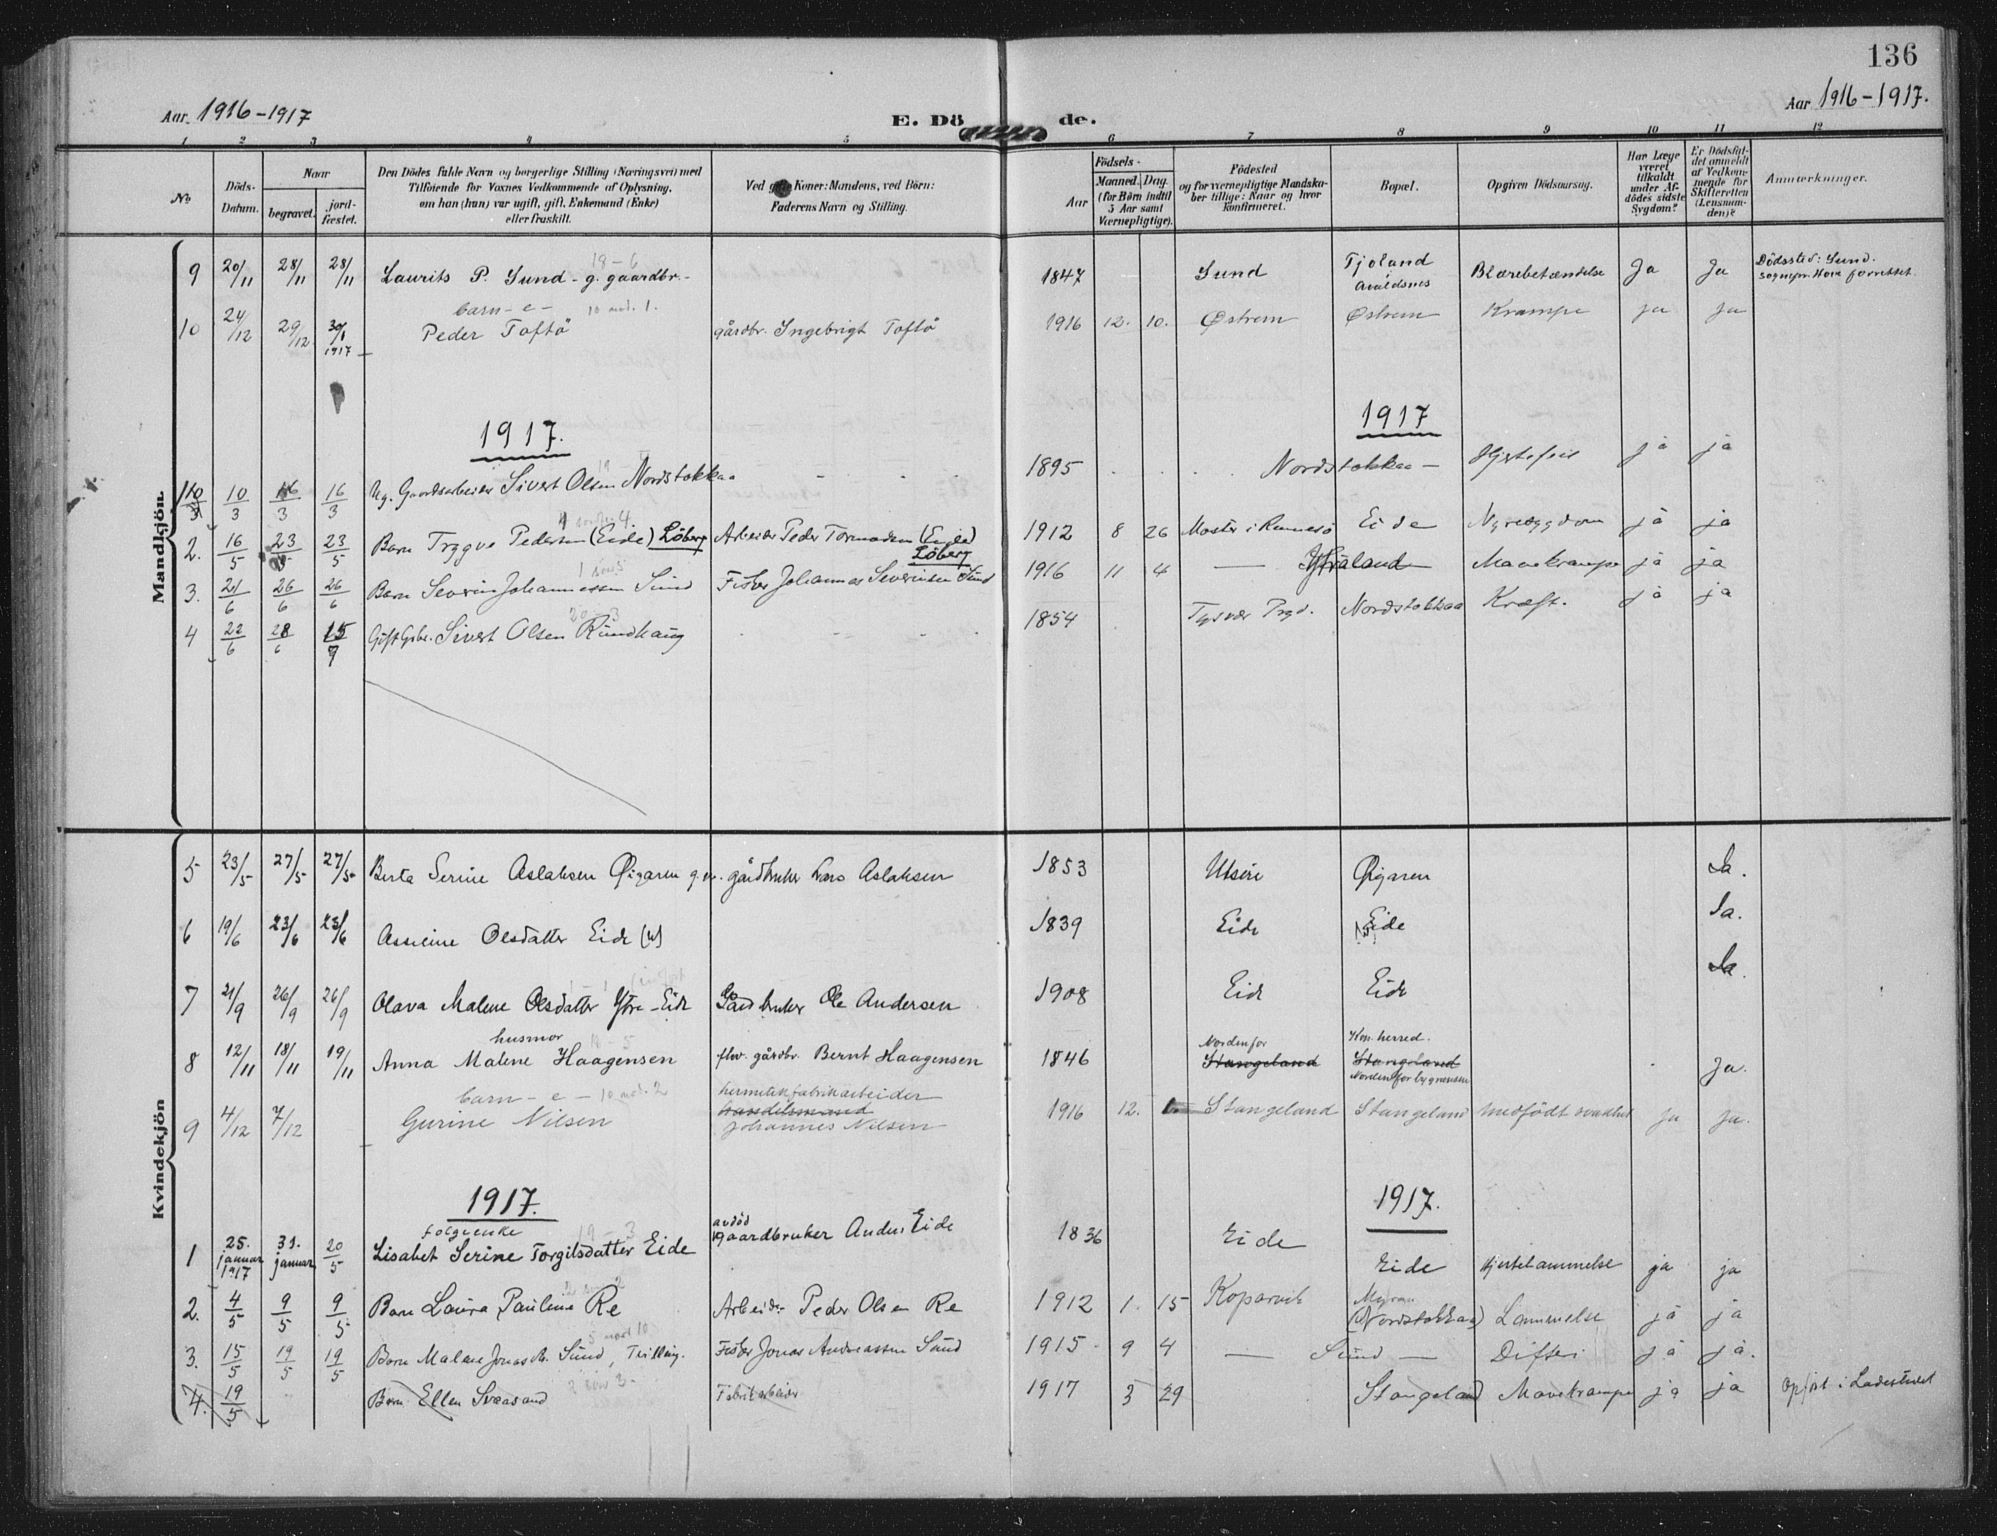 136
Aar 1916-1917
E. Dö de.
Aar 1916-1917.
1 2 3 4 5 6 7 8 9 10 11 12
No
Döds-Datum.
Naar
begravet.
jord-fæstet.
Den Dödes fulde Navn og borgerlige Stilling (Næringsvei) med
Tilföiende for Voxnes Vedkommende af Oplysning,
om han (hun) var ugift, gift, Enkemand (Enke)
eller fraskilt.
Ved Koner: Mandens, ved Börn:
Faderens Navn og Stilling.
Födsels-
Aar
Maaned. Dag.
(for Börn indtil
5 Aar samt
Værnepligtige).
Födested
og for værnepligtige Mandska-
ber tillige: Naar og hvor
konfirmeret.
Bopæl.
Opgiven Dödsaarsag.
Har Læge
været
tilkaldt
under Af-
dödes sidste
Sygdom?
Er Dödsfal-
det anmeldt
af Vedkom-
mende for
Skifteretten
(Lensman-
den)?
Anmærkninger.
Mandkjön
9 20/11 28/11 28/11 Laurits P. Sund - g. gaardbr. - 1847 Sund Tjoland Avaldsnes Blærebetændelse Ja Ja Dödssted: Sund.
sognepr. Hove forrettet.
barn - e - 10 mnd. 1.
10 24/12 29/12 30/1 1917 Peder Toftö gårdbr. Ingebrigt Toftö 1916 12. 10. Østrem Østrem Krampe ja ja
1917. 1917
10/3 16/3 16/3 Ug. Gaardsarbeider Sivert Olsen Nordstokkaa 1895 Nordstokkaa - Hjertefeil ja ja
2. 16/5 23/5 23/5 Barn Trygve Pedersen (Eide) Löberg Arbeider Peder Tormodsen (Eide) Löberg 1912 8 26 Moster i Rennesö Eide ja ja
3. 21/6 26/6 26/6 Barn Severin Johannessen Sund Fisker Johannes Severinsen Sund 1916 11 4 Mavekrampe ja ja
4 22/6 28/6 15/9 Gift Gbr. Sivert Olsen Rundhaug 1854 Tysvær Prgd. Nordstokkaa Kræft. ja ja
Kvindekjön
5 23/5 27/5 27/5 Berta Serine Aslaksen Øigaren g. gårdbruker Lars Aslaksen 1853 Utsire Øigaren Ja.
6 19/6 23/6 23/6 Olsdatter Eide 1839 Eide Eide Ja.
7 21/9 26/9 26/9 Olava Malene Olsdatter Ytre-Eide Gårdbruker Ole Andersen 1908 Eide Eide Ja.
husmor
8 12/11 18/11 19/11 Anna Malene Haagensen fhv. gårdbr. Bernt Haagensen 1846 Nordenfor Stangeland Kop. herred. Stangeland Norden for bygrænsen Ja.
barn - e - 10 md. 2
9 4/12 7/12 Gurine Nilsen hermetikfabrikarbeider handelsmand Johannes Nilsen 1916 12. 1 Stangeland Stangeland medfödt svakhet ja ja.
1917. 1917.
1 25. januar 1917 31. januar 20/5 Lisabet Serine Torgilsdatter Eide avdöd gaardbruker Anders Eide 1836 Eide Eide Hjertelammelse ja ja
2. 4/5 9/5 9/5 Barn Laura Pauline Re Arbeider Peder Olsen Re 1912 1. 15 Kopervik (Nordstokkaa) Lammelse ja ja
3. 15/5 19/5 19/5 Barn Malene Sund, Trilling. Fisker Jonas Andreassen Sund 1915 9 4 Sund Difteri ja ja.
4. 19/5 Barn Ellen Svaasand Fabrikarbeider 1917 3 29 Stangeland Mavekrampe ja ja Opfört i Ladestedet